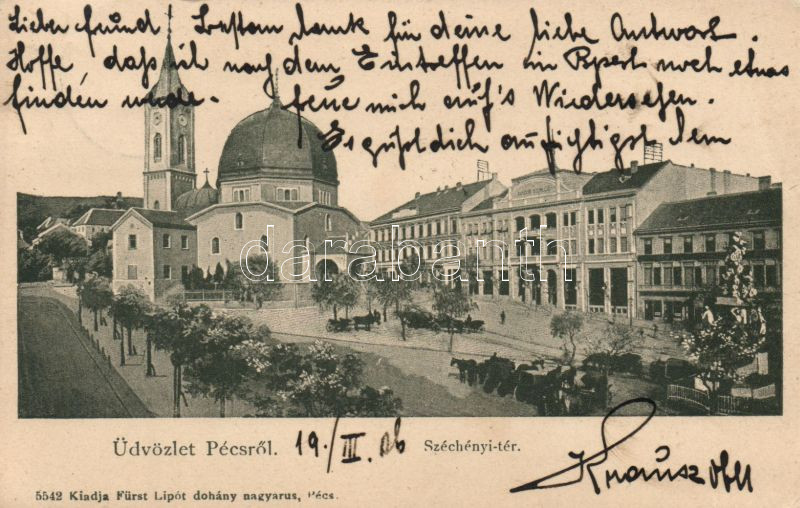 Lieber Freund! Besten Dank für deine liebe Antwort.
Hoffe daß ich nach dem Eintreffen in noch etwas
finden werde. Freue mich auf's Wiedersehen.
Es grüßt dich aufrichtigst dein
darabanth.com
Üdvözlet Pécsről. 19/III. 06 Széchényi-tér.
5542 Kiadja Fürst Lipót dohány nagyarus, Pécs.